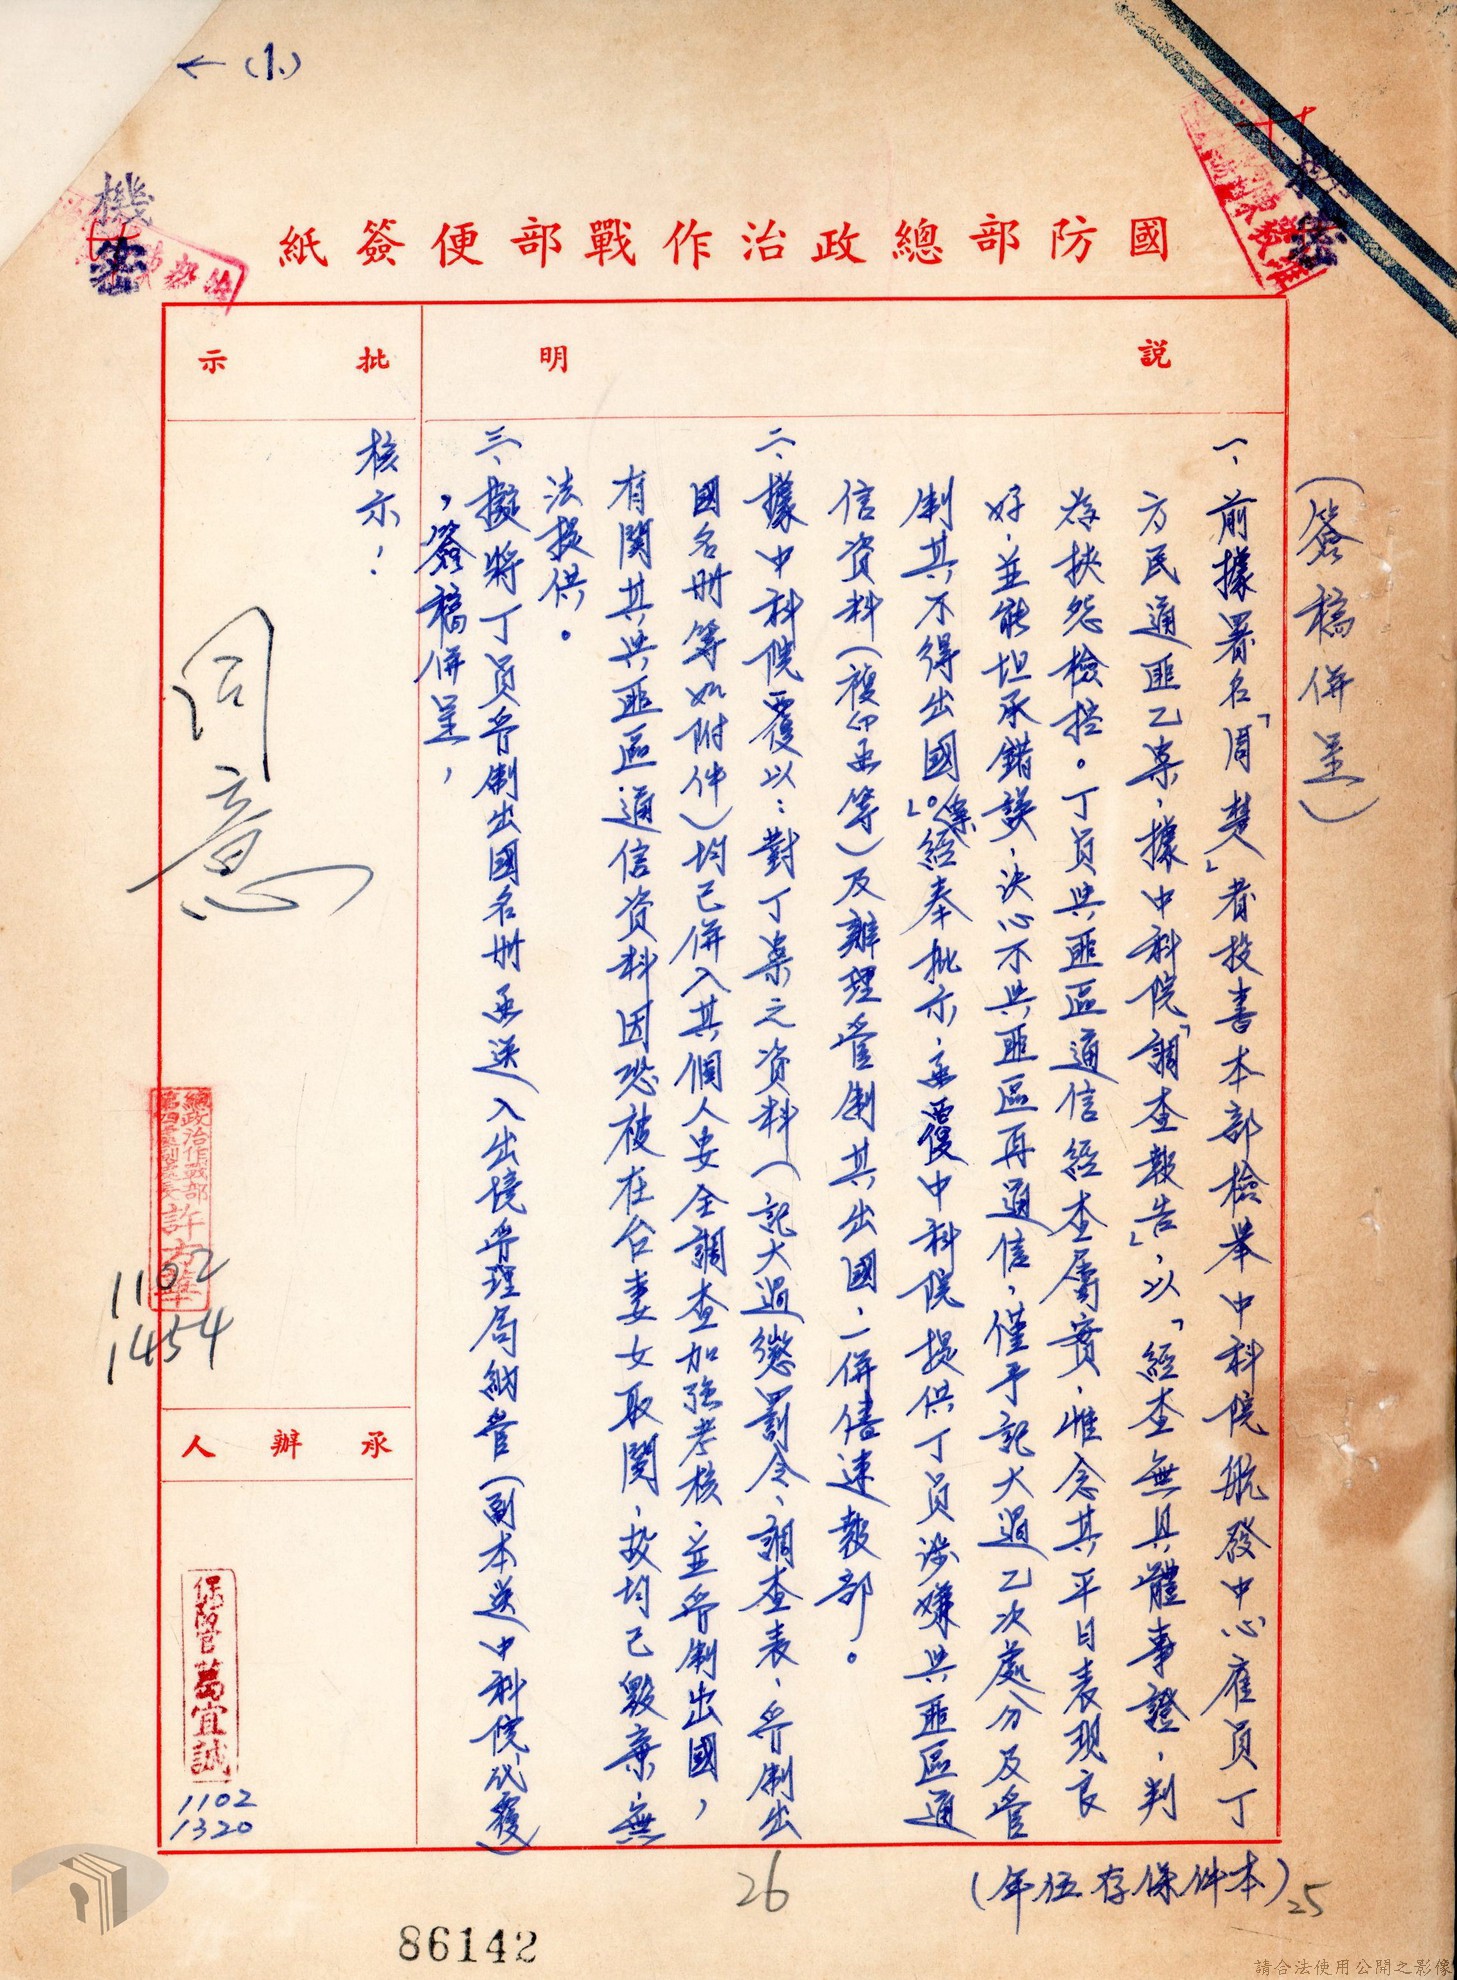 ←(1.)
機密
機密
國防部總政治作戰部便簽紙
說明
批示
（簽稿併呈）
一、前據署名「周楚」者投書本部檢舉中科院航發中心雇員丁
方民通匪乙案，據中科院「調查報告」，以「經查無具體事證，判
為挾怨檢控。丁員與匪區通信經查屬實，惟念其平日表現良
好，並能坦承錯誤，決心不與匪區再通信，僅予記大過乙次處分及管
制其不得出國」。案經奉批示，函覆中科院提供丁員涉嫌與匪區通
信資料（複印函等）及辦理管制其出國，一併儘速報部。
二、據中科院覆以：對丁案之資料（記大過懲罰令、調查表、管制出
國名冊等如附件）均已併入其個人安全調查加強考核，並管制出國，
有關其與匪區通信資料因恐被在台妻女取閱，故均已毀棄，無
法提供。
三、擬將丁員管制出國名冊函送入出境管理局納管（副本送中科院代覆）
，簽稿併呈，
核示！
同意
總政治作戰部
第四處副處長
許方華
1102
1454
承辦人
保防官葛宜誠
1102
1320
（本件保存伍年）
25
26
86142
請合法使用公開之影像